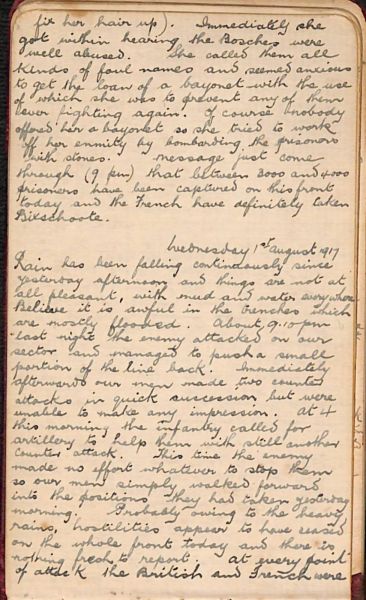 fix her hair up). Immediately she
got within hearing the Bosches were
well abused. She called them all
kinds of foul names and seemed anxious
to get the loan of a bayonet with the use
of which she was to prevent any of them
ever fighting again. Of course nobody
offered her a bayonet so she tried to work
off her enmity by bombarding the prisoners
with stones. Message just come
through (9 pm) that between 3000 and 4000
prisoners have been captured on this front
today and the French have definitely taken
Bixschoote.
Wednesday 1st August 1917
Rain has been falling continuously since
yesterday afternoon and things are not at
all pleasant, with mud and water everywhere
Believe it is awful in the trenches which
are mostly flooded. About 9.10 pm
last night the enemy attacked on our
sector and managed to push a small
portion of the line back. Immediately
afterwards our men made two counter
attacks in quick succession but were
unable to make any impression. At 4
this morning the infantry called for
artillery to help them with still another
counter attack. This time the enemy
made no effort whatever to stop them
so our men simply walked forward
into the positions they had taken yesterday
morning. Probably owing to the heavy
rains, hostilities appear to have ceased
on the whole front today and there is
nothing fresh to report. At every point
of attack the British and French were